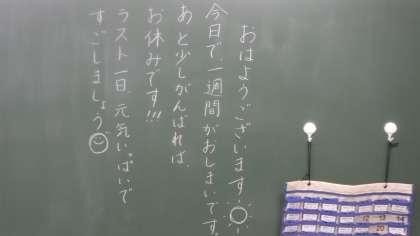 おはようございます。
今日で、一週間がおしまいです。
あと少しがんばれば、
お休みです!!!
ラスト一日、元気いっぱいで
すごしましょう。
12 13 14
20